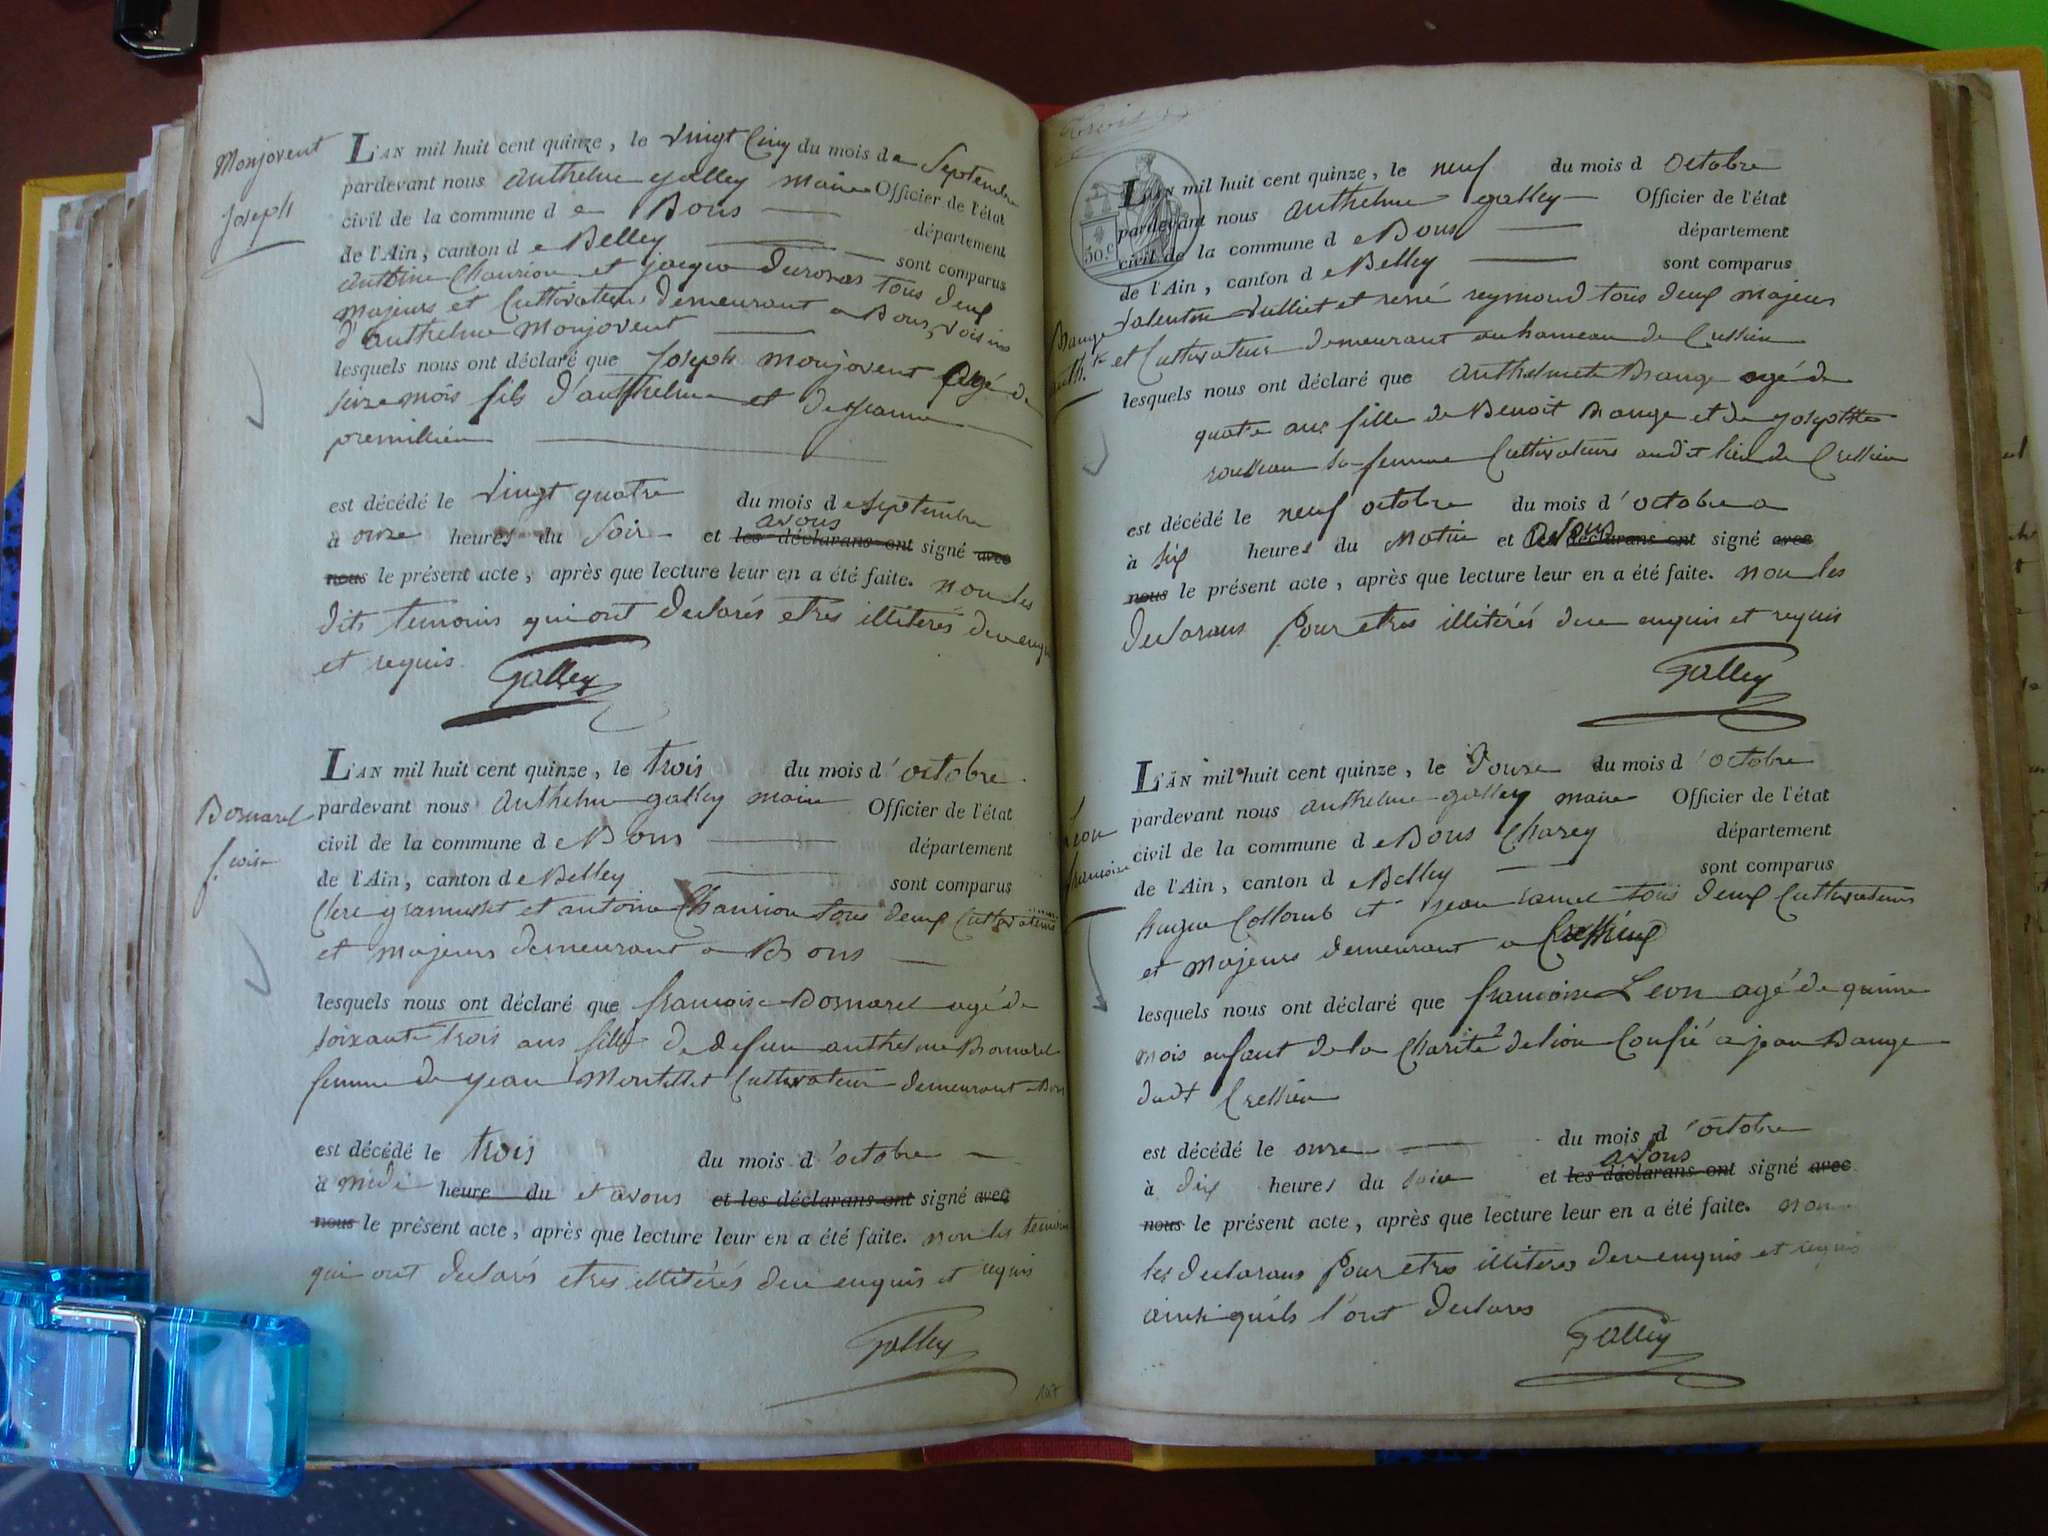 Monjovent
Joseph
L'AN mil huit cent quinze, le vingt Cinq du mois de Septembre
pardevant nous anthelme galley maire Officier de l'état
civil de la commune d e Bons département
de l'Ain, canton d e Belley sont comparus
antoine Chaurion et jacque tous deux
majeurs et Cultivateurs demeurant a Bons, voisins
d'anthelme Monjovent
lesquels nous ont déclaré que Joseph monjovent agé de
seize mois fils d'anthelme et de jeanne
premillieu
est décédé le vingt quatre du mois d e septembre
à onze heures du soir et avons les déclarans ont signé avec
nous le présent acte, après que lecture leur en a été faite. non les
dits temoins qui ont declarés etres illiterés de ce enquis
et requis
Galley
Bornarel
f.coise
L'AN mil huit cent quinze, le trois du mois d'octobre
pardevant nous anthelme galley maire Officier de l'état
civil de la commune d e Bons département
de l'Ain, canton d e Belley sont comparus
gramusset et antoine Chaurion tous deux Cultivateurs
et majeurs demeurant a Bons
lesquels nous ont déclaré que francoise Bornarel agé de
soixante trois ans fille de defun anthelme Bornarel
femme de jean Montillet Cultivateur demeurant a Bons
est décédé le trois du mois d'octobre
à midi heure du et avons et les déclarans ont signé avec
nous le présent acte, après que lecture leur en a été faite. non les temoins
qui ont declarés etres illiterés de ce enquis et requis
Galley
107
30.c
L'AN mil huit cent quinze, le neuf du mois d octobre
pardevant nous anthelme galley Officier de l'état
civil de la commune d e Bons département
de l'Ain, canton d e Belley sont comparus
Bange
anth.te
valentin vulliet et rené reymond tous deux majeurs
et Cultivateur demeurant au hameau de Cressieu
lesquels nous ont déclaré que anthelmete Bange agé de
quatre ans fille de Benoit Bange et de josephte
rousseau sa femme Cultivateurs audit lieu de Cressieu
est décédé le neuf octobre du mois d'octobre a
à six heures du matin et avons les déclarans ont signé avec
nous le présent acte, après que lecture leur en a été faite. non les
declarans pour etres illiterés de ce enquis et requis
Galley
L'AN mil huit cent quinze, le douze du mois d'octobre
pardevant nous anthelme galley maire Officier de l'état
civil de la commune d e Bons Charey département
de l'Ain, canton d e Belley sont comparus
Léon
francoise
hugue Collomb et jean tous deux Cultivateurs
et majeurs demeurant a Cressieux
lesquels nous ont déclaré que francoise Leon agé de quinze
mois enfant de la Charité de lion Confié a jean Bange
dudt Cressieu
est décédé le onze du mois d'octobre
à dix heures du soir et avons les déclarans ont signé avec
nous le présent acte, après que lecture leur en a été faite. non
les declarans pour etres illiteres de ce enquis et requis
ainsi quils l'ont declares
Galley